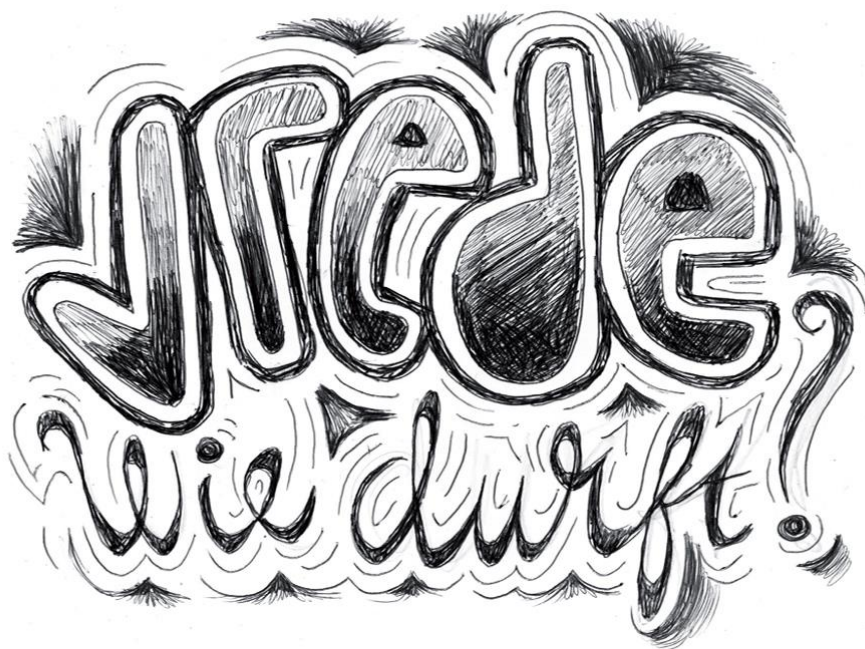 vrede
wie durft?